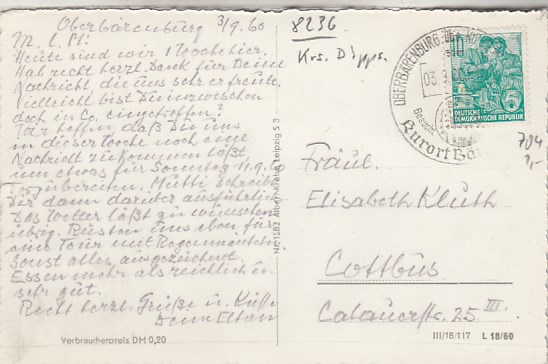 Oberbärenburg 3/9.60
M. l. M!
Heute sind wir 1 Woche hier.
Hab recht herzl. Dank für Deine
Nachricht, die uns sehr erfreute.
Vielleicht bist Du inzwischen
doch in Co. eingetroffen?
Wir hoffen, daß Du uns
in dieser Woche noch eine
Nachricht zukommen läßt,
um etwas für Sonntag 11.9.60
vorzubereiten. Mutti schreibt
Dir dann darüber ausführlich.
Das Wetter läßt zu wünschen
übrig. Rüsten uns eben für
eine Tour mit Regenmantel.
Sonst alles ausgezeichnet.
Essen mehr als reichlich u.
sehr gut.
Recht herzl. Grüße u. Küsse
Deine Eltern
Verbraucherpreis DM 0,20
8236
Krs. Dipps.
OBERBÄRENBURG
03.9.60
Kurort Bär
10
DEUTSCHE
DEMOKRATISCHE REPUBLIK
704
Fräul.
Elisabeth Kluth
Cottbus
Calauerstr. 25 III.
III/18/117 L 18/60